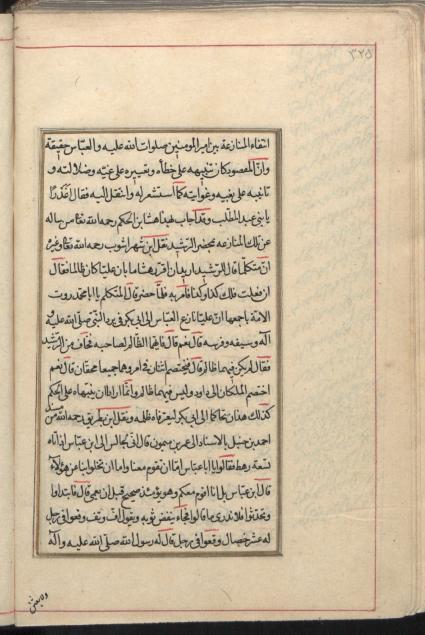 ٣٢۵
انتفاء المنازعة بين امير المومنين صلوات الله عليه والعباس حقيقة
وان المقصود كان تنبيهه على خطأه وتعييره على غيّه وضلالته و
تانيبه على بغيه وغوايته كما استشعر له وانتقل اليه فقال اغدرًا
يا بنى عبد المطلب وقد اجاب بهذا هشام بن الحكم رحمه الله تعا من ساله
عن تلك المنازعه بمحضر الرشيد نقل ابن شهر اشوب رحمه الله تعا وغيره
ان متكلما قال للرشيد اريد ان اقرر هشاما بان عليا كان ظالما فقال
ان فعلت فلك كذا وكذا فامر به فلما حضر قال المتكلم يا ابا محمد روت
الامة باجمعها ان عليا نازع العباس الى ابى بكر فى برد النبى صلى الله عليه و
آله وسيفه وفرسه قال نعم قال فايهما الظالم لصاحبه فخاف من الرشيد
فقال لم يكن فيهما ظالم قال فيختصم اثنان فى امر وهما جميعا محقان قال نعم
اختصم الملكان الى داود وليس فيهما ظالم وانما ارادا ان ينبهاه على الحكم
كذلك هذان تحاكما الى ابى بكر ليعرفاه ظلمه ونقل ابن طريق رحمه الله من مسند
احمد بن حنبل بالاسناد الى عمر بن ميمون قال انى لجالس الى ابن عباس اذ اتاه
تسعة رهط فقالوا يا ابا عباس اما ان تقوم معنا واما ان تخلوا بنا عن هؤلاء
قال ابن عباس بل انا اقوم معكم وهو يومئذ صحيح قبل ان يعمى قال فابتداوا
وتحدثوا فلا ندرى ما قالوا فجاء ينفض ثوبه ويقول اف وتف وقعوا فى رجل
له عشر خصال وقعوا فى رجل قال له رسول الله صلى الله عليه وآله